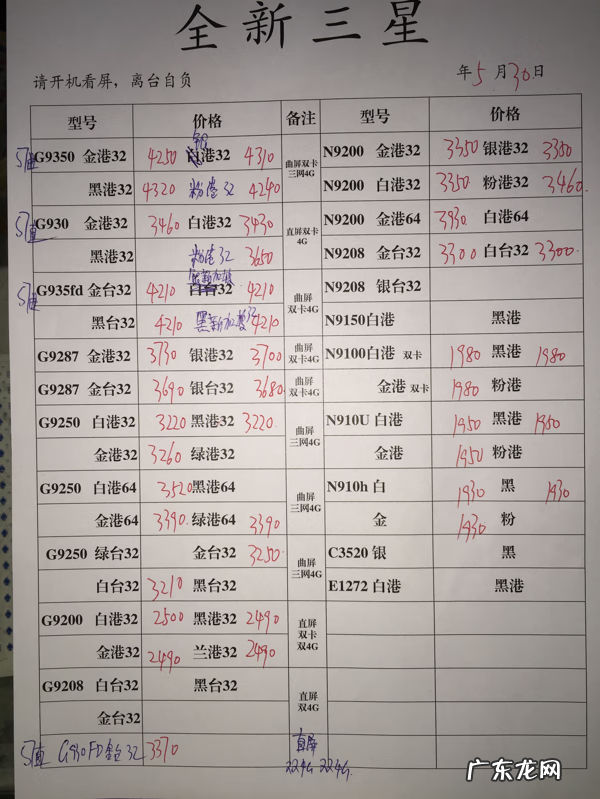 全新三星
请开机看屏，离台自负
年5月30日
型号 价格 备注 型号 价格
G9350 金港32 4250 银港32 4310 曲屏双卡三网4G N9200 金港32 3350 银港32 3350
黑港32 4320 粉港32 4240 N9200 白港32 3350 粉港32 3460
S7直 G930 金港32 3460 白港32 3430 直屏双卡4G N9200 金港64 3930 白港64
黑港32 粉港32 3650 N9208 金台32 3300 白台32 3300
G935fd 金台32 4210 白台32 4210 曲屏双卡4G N9208 银台32
黑台32 4210 黑新加坡32 4210 N9150白港 黑港
G9287 金港32 3730 银港32 3700 曲屏双卡4G N9100白港 双卡 1980 黑港 1980
G9287 金台32 3690 银台32 3680 曲屏双卡4G 金港 双卡 1980 粉港
G9250 白港32 3220 黑港32 3220 曲屏三网4G N910U 白港 1950 黑港 1950
金港32 3260 绿港32 金港 1950 粉港
G9250 白港64 3520 黑港64 曲屏三网4G N910h 白 1930 黑 1930
金港64 3390 绿港64 3390 金 1930 粉
G9250 绿台32 金台32 3250 曲屏三网4G C3520 银 黑
白台32 3210 黑台32 E1272 白港 黑港
G9200 白港32 2500 黑港32 2490 直屏双卡双4G
金港32 2490 兰港32 2490
G9208 白台32 黑台32 直屏双4G
金台32
S7直 G930FD 金台32 3370 直屏
广东龙网